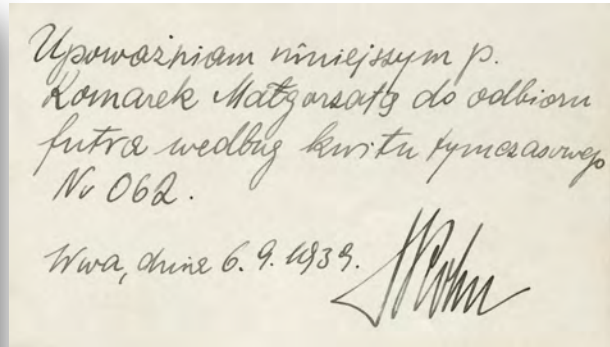 Upoważniam niniejszym p.
Komarek Małgorzatę do odbioru
futra według kwitu tymczasowego
Nr 062.
Wwa, dnia 6.9.1939.